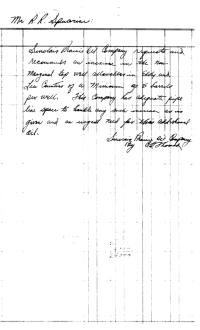 Mr R. R. Spurrier
Sinclair Prairie Oil Company requests and
recommends an increase in the non
Marginal top well allowables in Eddy and
Lea Counties of a Minimum of 5 barrels
per well. This Company has adequate pipe
line space to handle any such increase as is
given and an urgent need for these additional
oil.
Sinclair Prairie Oil Company
By